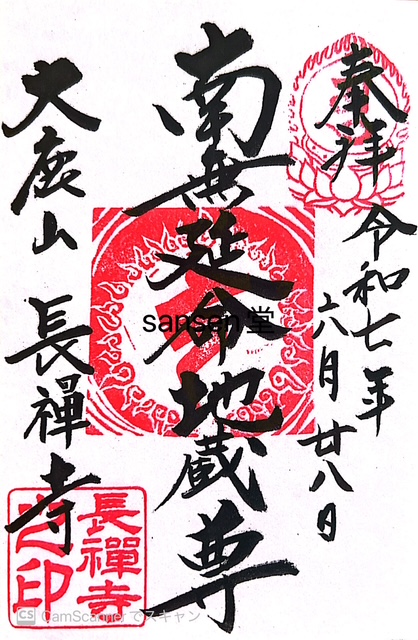 奉拝
令和七年
六月廿八日
南無延命地蔵尊
大鹿山
長禪寺
長禪寺
之印
sansan堂
CS CamScanner でスキャン